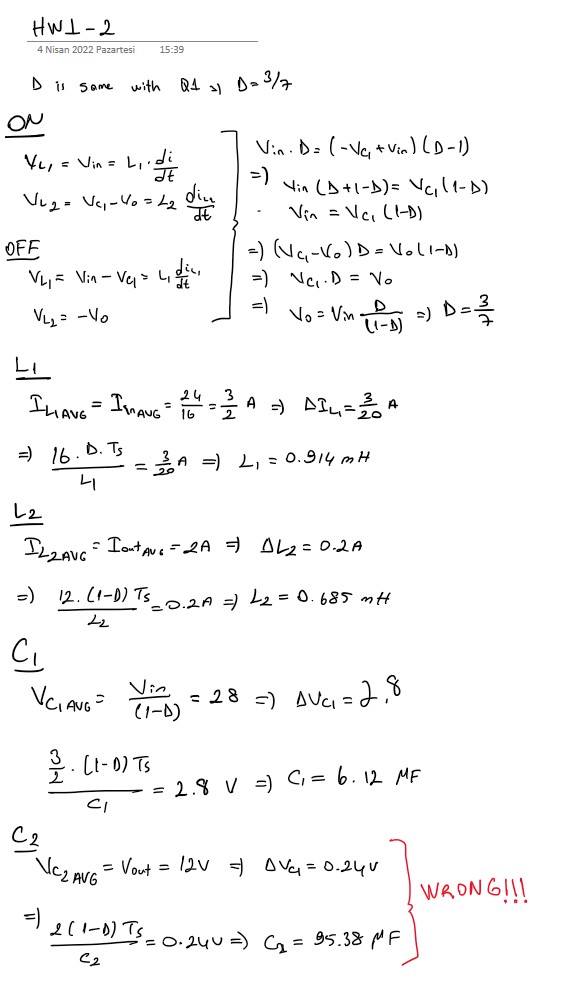 HW1-2
4 Nisan 2022 Pazartesi 15:39
D is same with Q1 => D=3/7
ON
V_L1 = Vin = L1 · di/dt
V_L2 = V_C1 - Vo = L2 di_L2/dt
OFF
V_L1 = Vin - V_C1 = L1 di_L1/dt
V_L2 = -Vo
Vin · D = (-V_C1 + Vin)(D-1)
=) Vin (D+1-D) = V_C1 (1-D)
· Vin = V_C1 (1-D)
=) (V_C1 - Vo) D = Vo (1-D)
=) V_C1 · D = Vo
=) Vo = Vin D/(1-D) =) D = 3/7
L1
I_L1 AVG = I_in AVG = 24/16 = 3/2 A =) ΔI_L1 = 3/20 A
=) 16 · D · Ts / L1 = 3/20 A =) L1 = 0.914 mH
L2
I_L2 AVG = Iout AVG = 2A =) ΔL2 = 0.2A
=) 12 · (1-D) Ts / L2 = 0.2A =) L2 = 0.685 mH
C1
V_C1 AVG = Vin/(1-D) = 28 =) ΔV_C1 = 2,8
3/2 · (1-D) Ts / C1 = 2.8 V =) C1 = 6.12 μF
C2
V_C2 AVG = Vout = 12V =) ΔV_C1 = 0.24V
=) 2 (1-D) Ts / C2 = 0.24V =) C2 = 95.38 μF
WRONG!!!